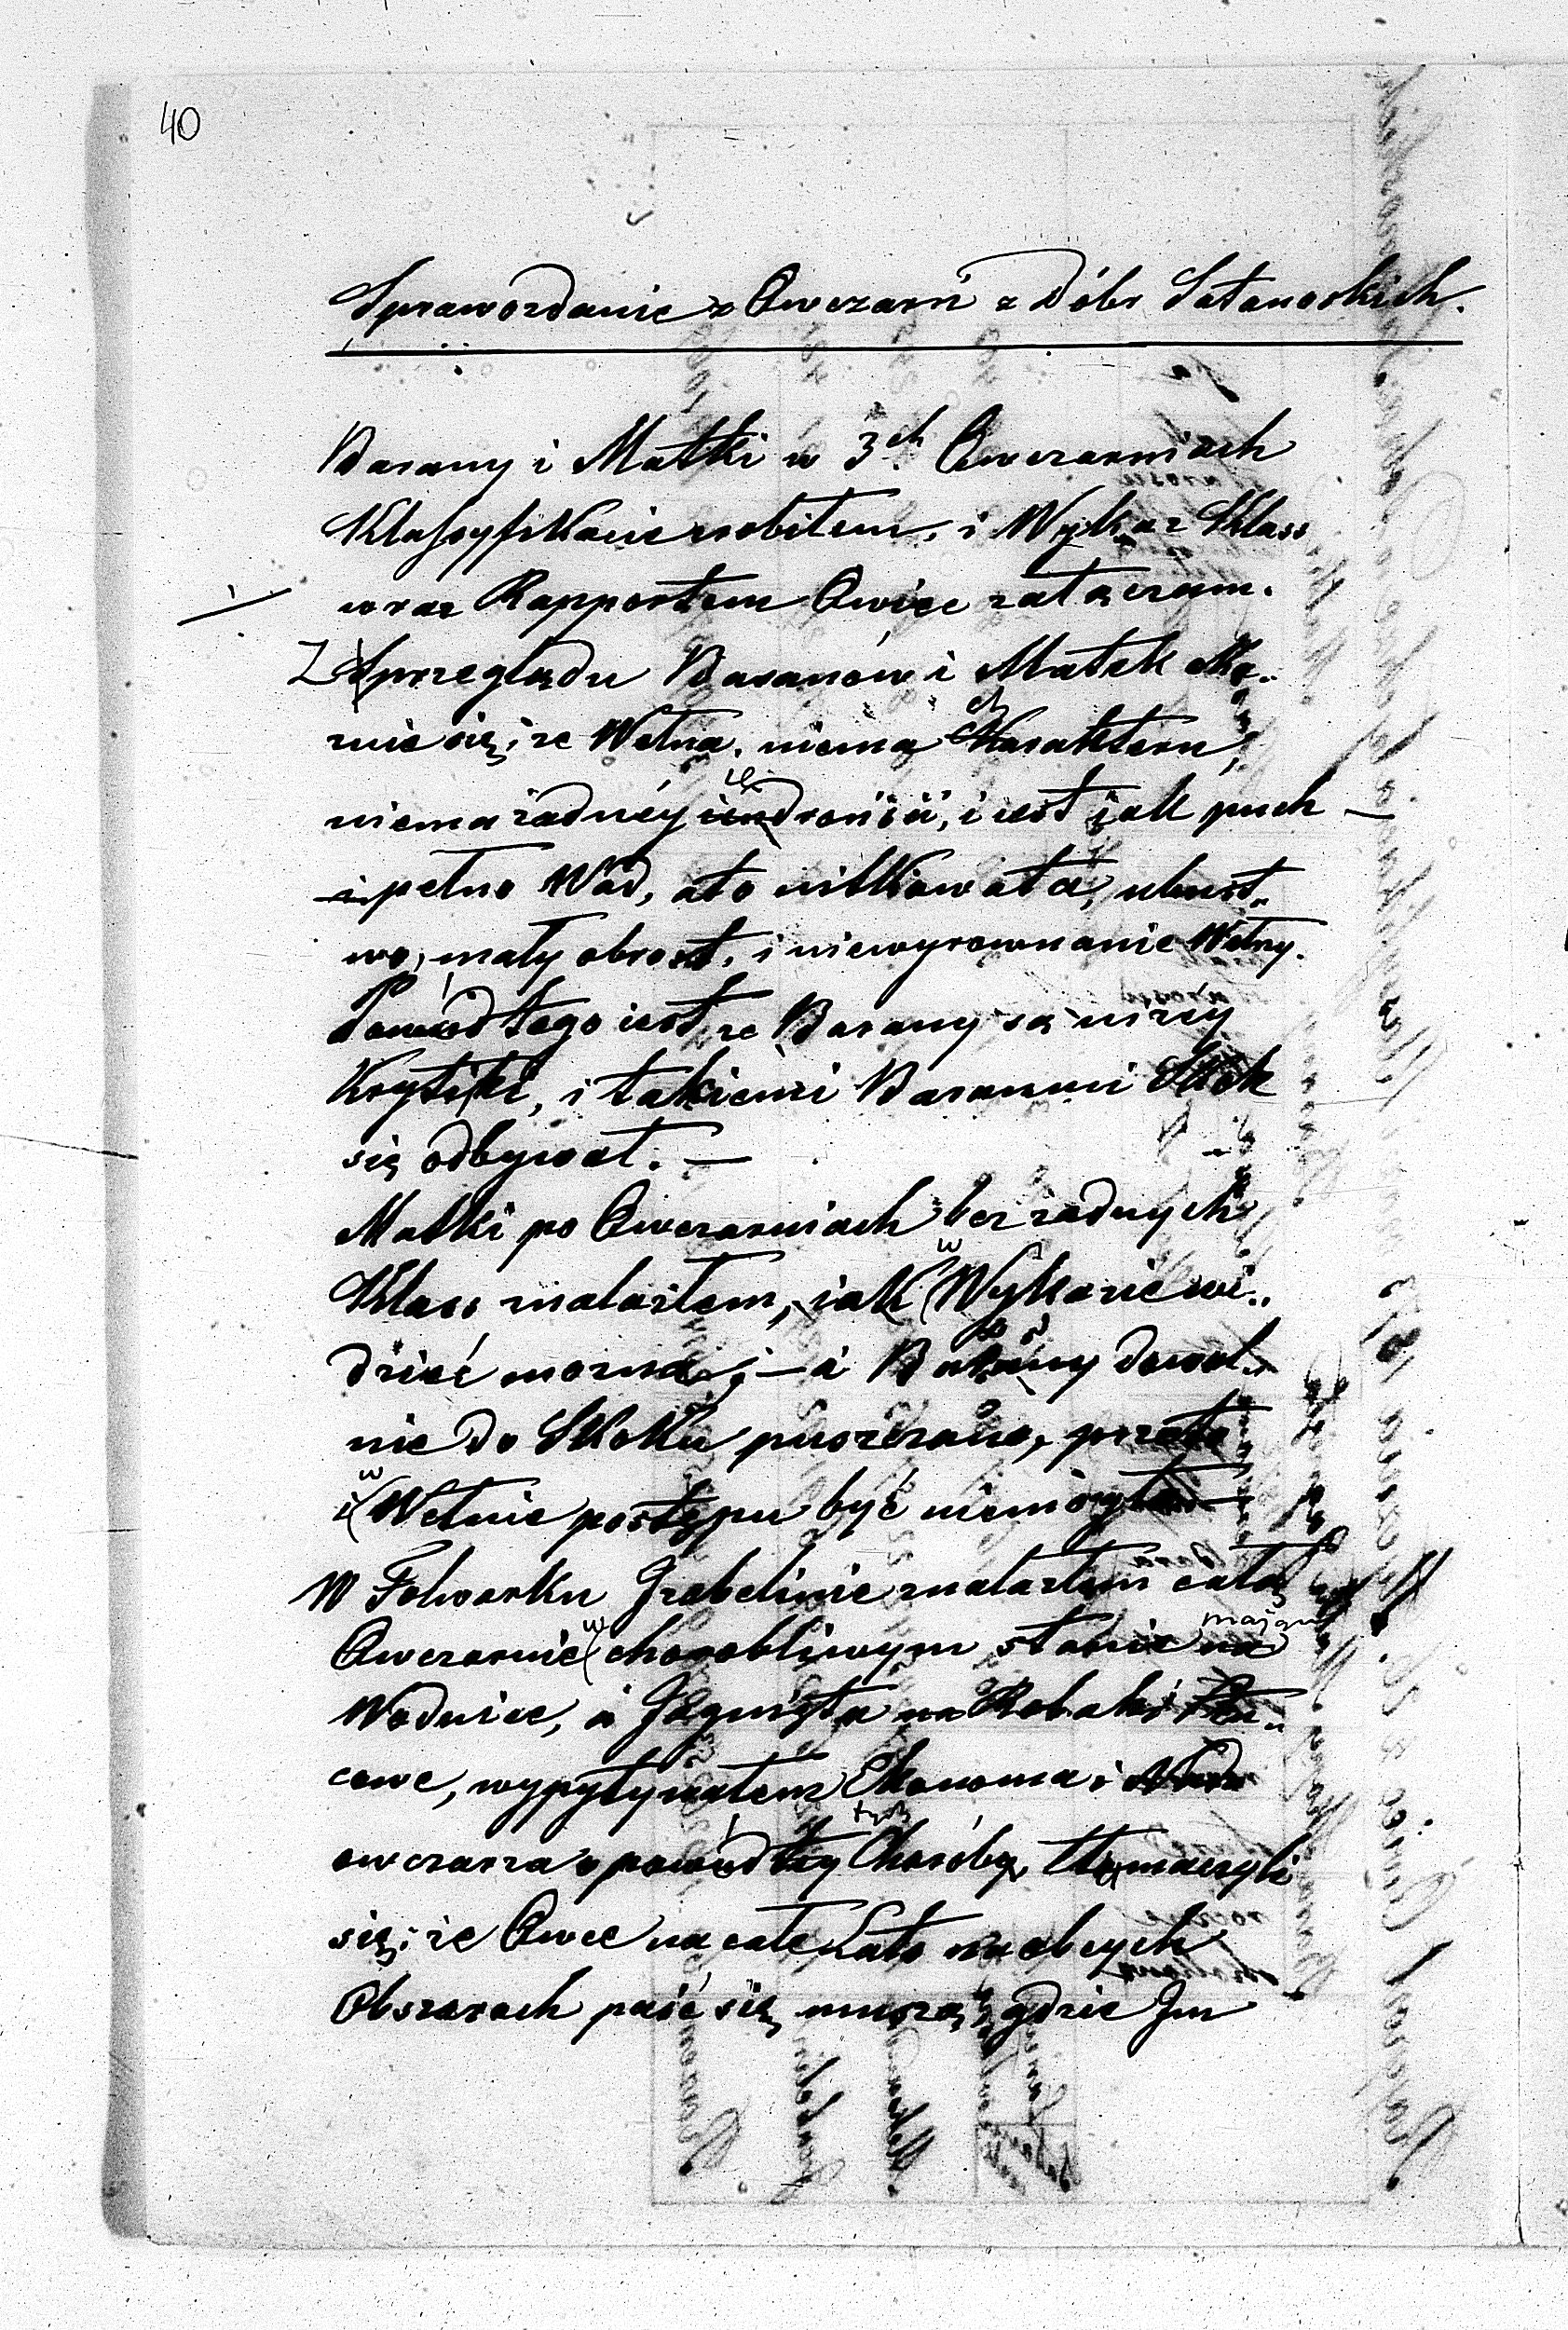 40
Sprawozdanie z Owczarń z Dóbr Satanoskich.
Barany i Matki w 3ch Owczarniach
Klassyfikacie zrobiłem, i Wykaz Klass
wraz Rapportem Owiec załączam.
Z przeglądu Baranów i Matek
się, że Wełna niema Charakteru,
niema żadnéy jędrności, i iest jak puch —
i pełno Wad, ato nitkowata, ubust„
wo, mały obrost, i niewyrownanie Wełny.
Powód tego iest, że Barany są niżey
Krytiki, i takiemi Baranmi Skok
się odbywał. —
Matki po Owczarniach bez żadnych
Klass znalazłem, iak w Wykazie wi„
dzieć można; — a Barany dowol„
nie do Skoku puszczano, przeto
i w Wełnie postępu być niemogło —
W Folwarku Grabelinie znalazłem całą
Owczarnie w chorobliwym stanie mając
Wodnice, a Jagnięta na Robaki
cowe, wypytywałem Ekonoma i
owczarza o powód tych Choróby, tłomaczyli
się, że Owce na całe Lato na obcych
Obszarach paść się muszą, gdzie Im